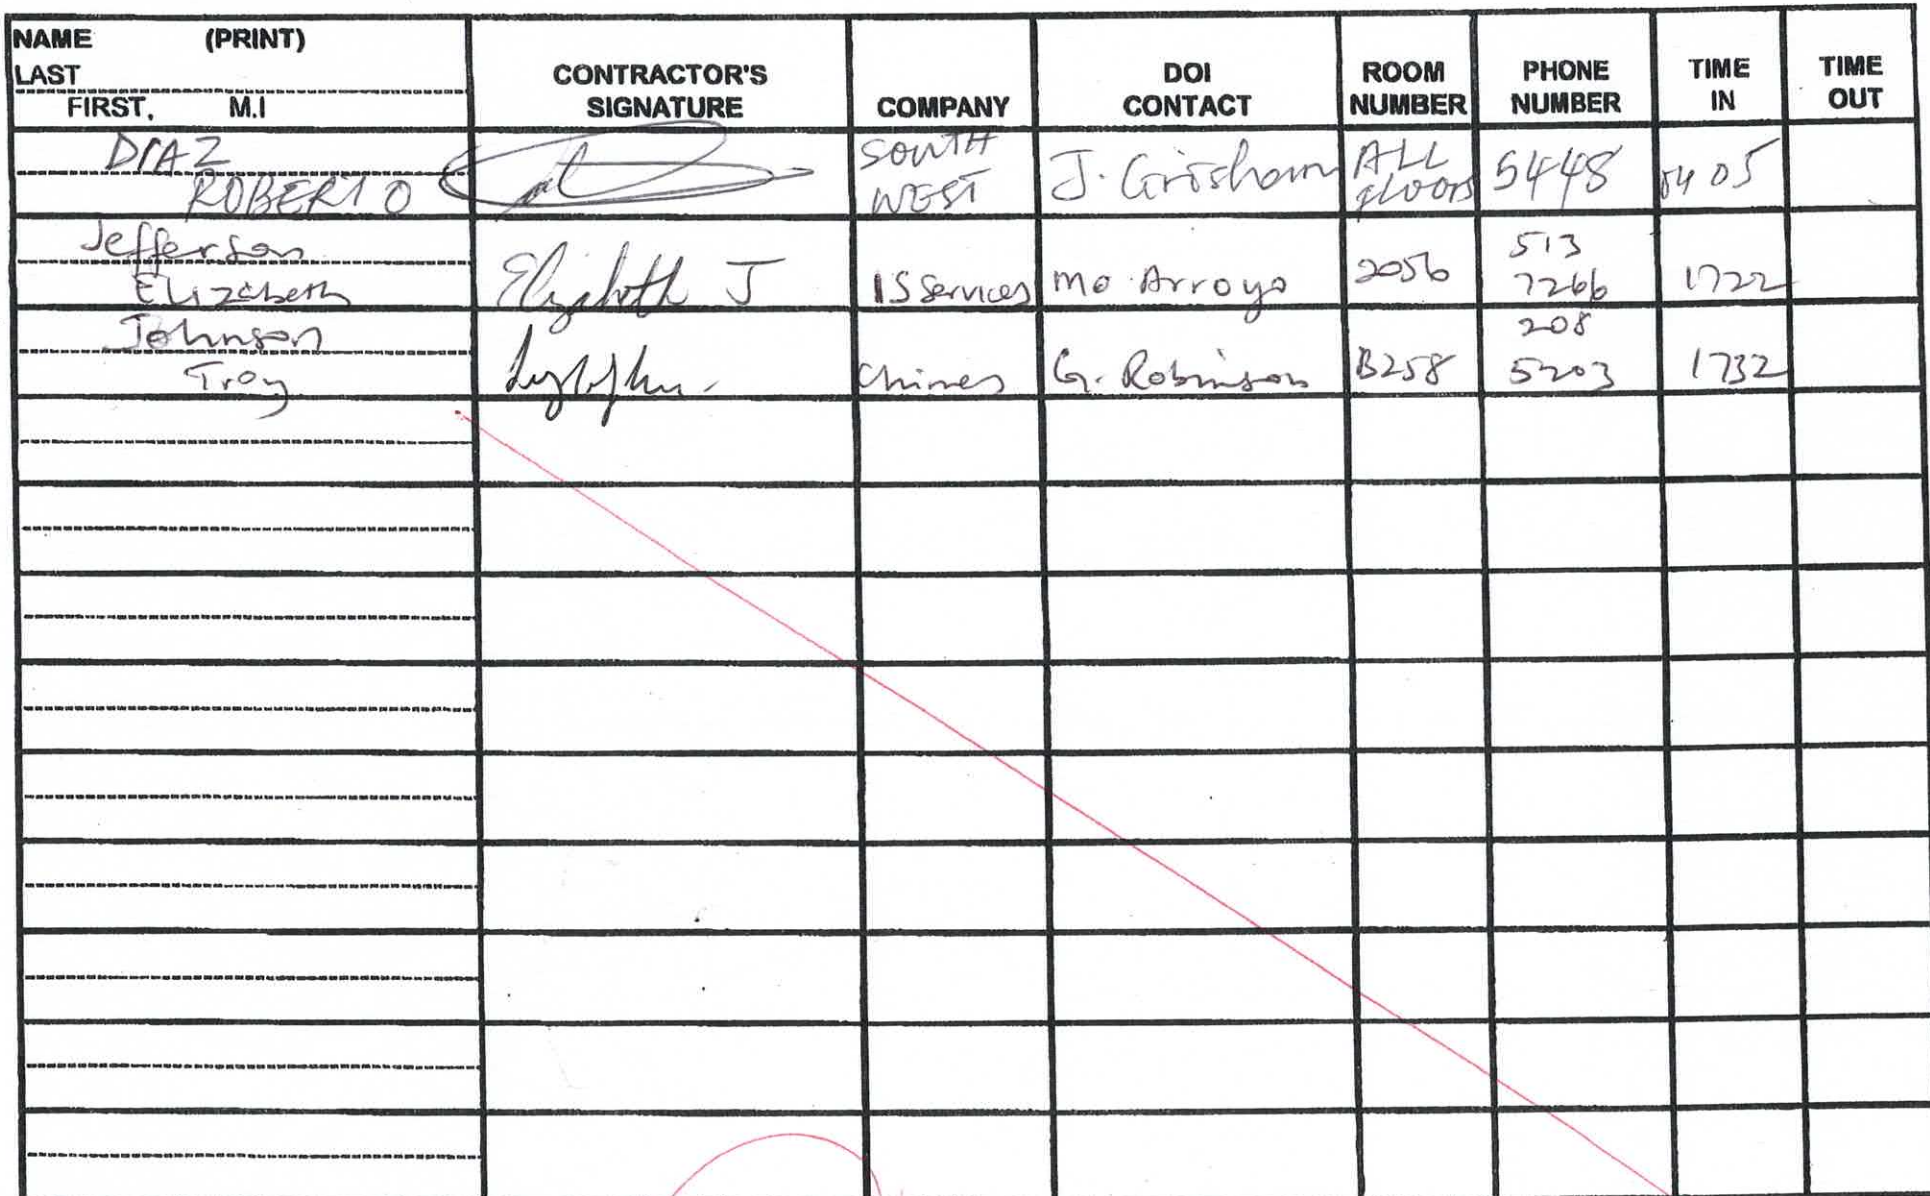 NAME (PRINT)
LAST
FIRST, M.I
CONTRACTOR'S
SIGNATURE
COMPANY
DOI
CONTACT
ROOM
NUMBER
PHONE
NUMBER
TIME
IN
TIME
OUT
DIAZ
ROBERTO
SOUTH
WEST
J. Grisham
ALL
floors
5448
0405
Jefferson
Elizabeth
Elizabeth J
IS Services
Mo Arroyo
2056
513
7266
1722
Johnson
Troy
Chimes
G. Robinson
B258
208
5203
1732